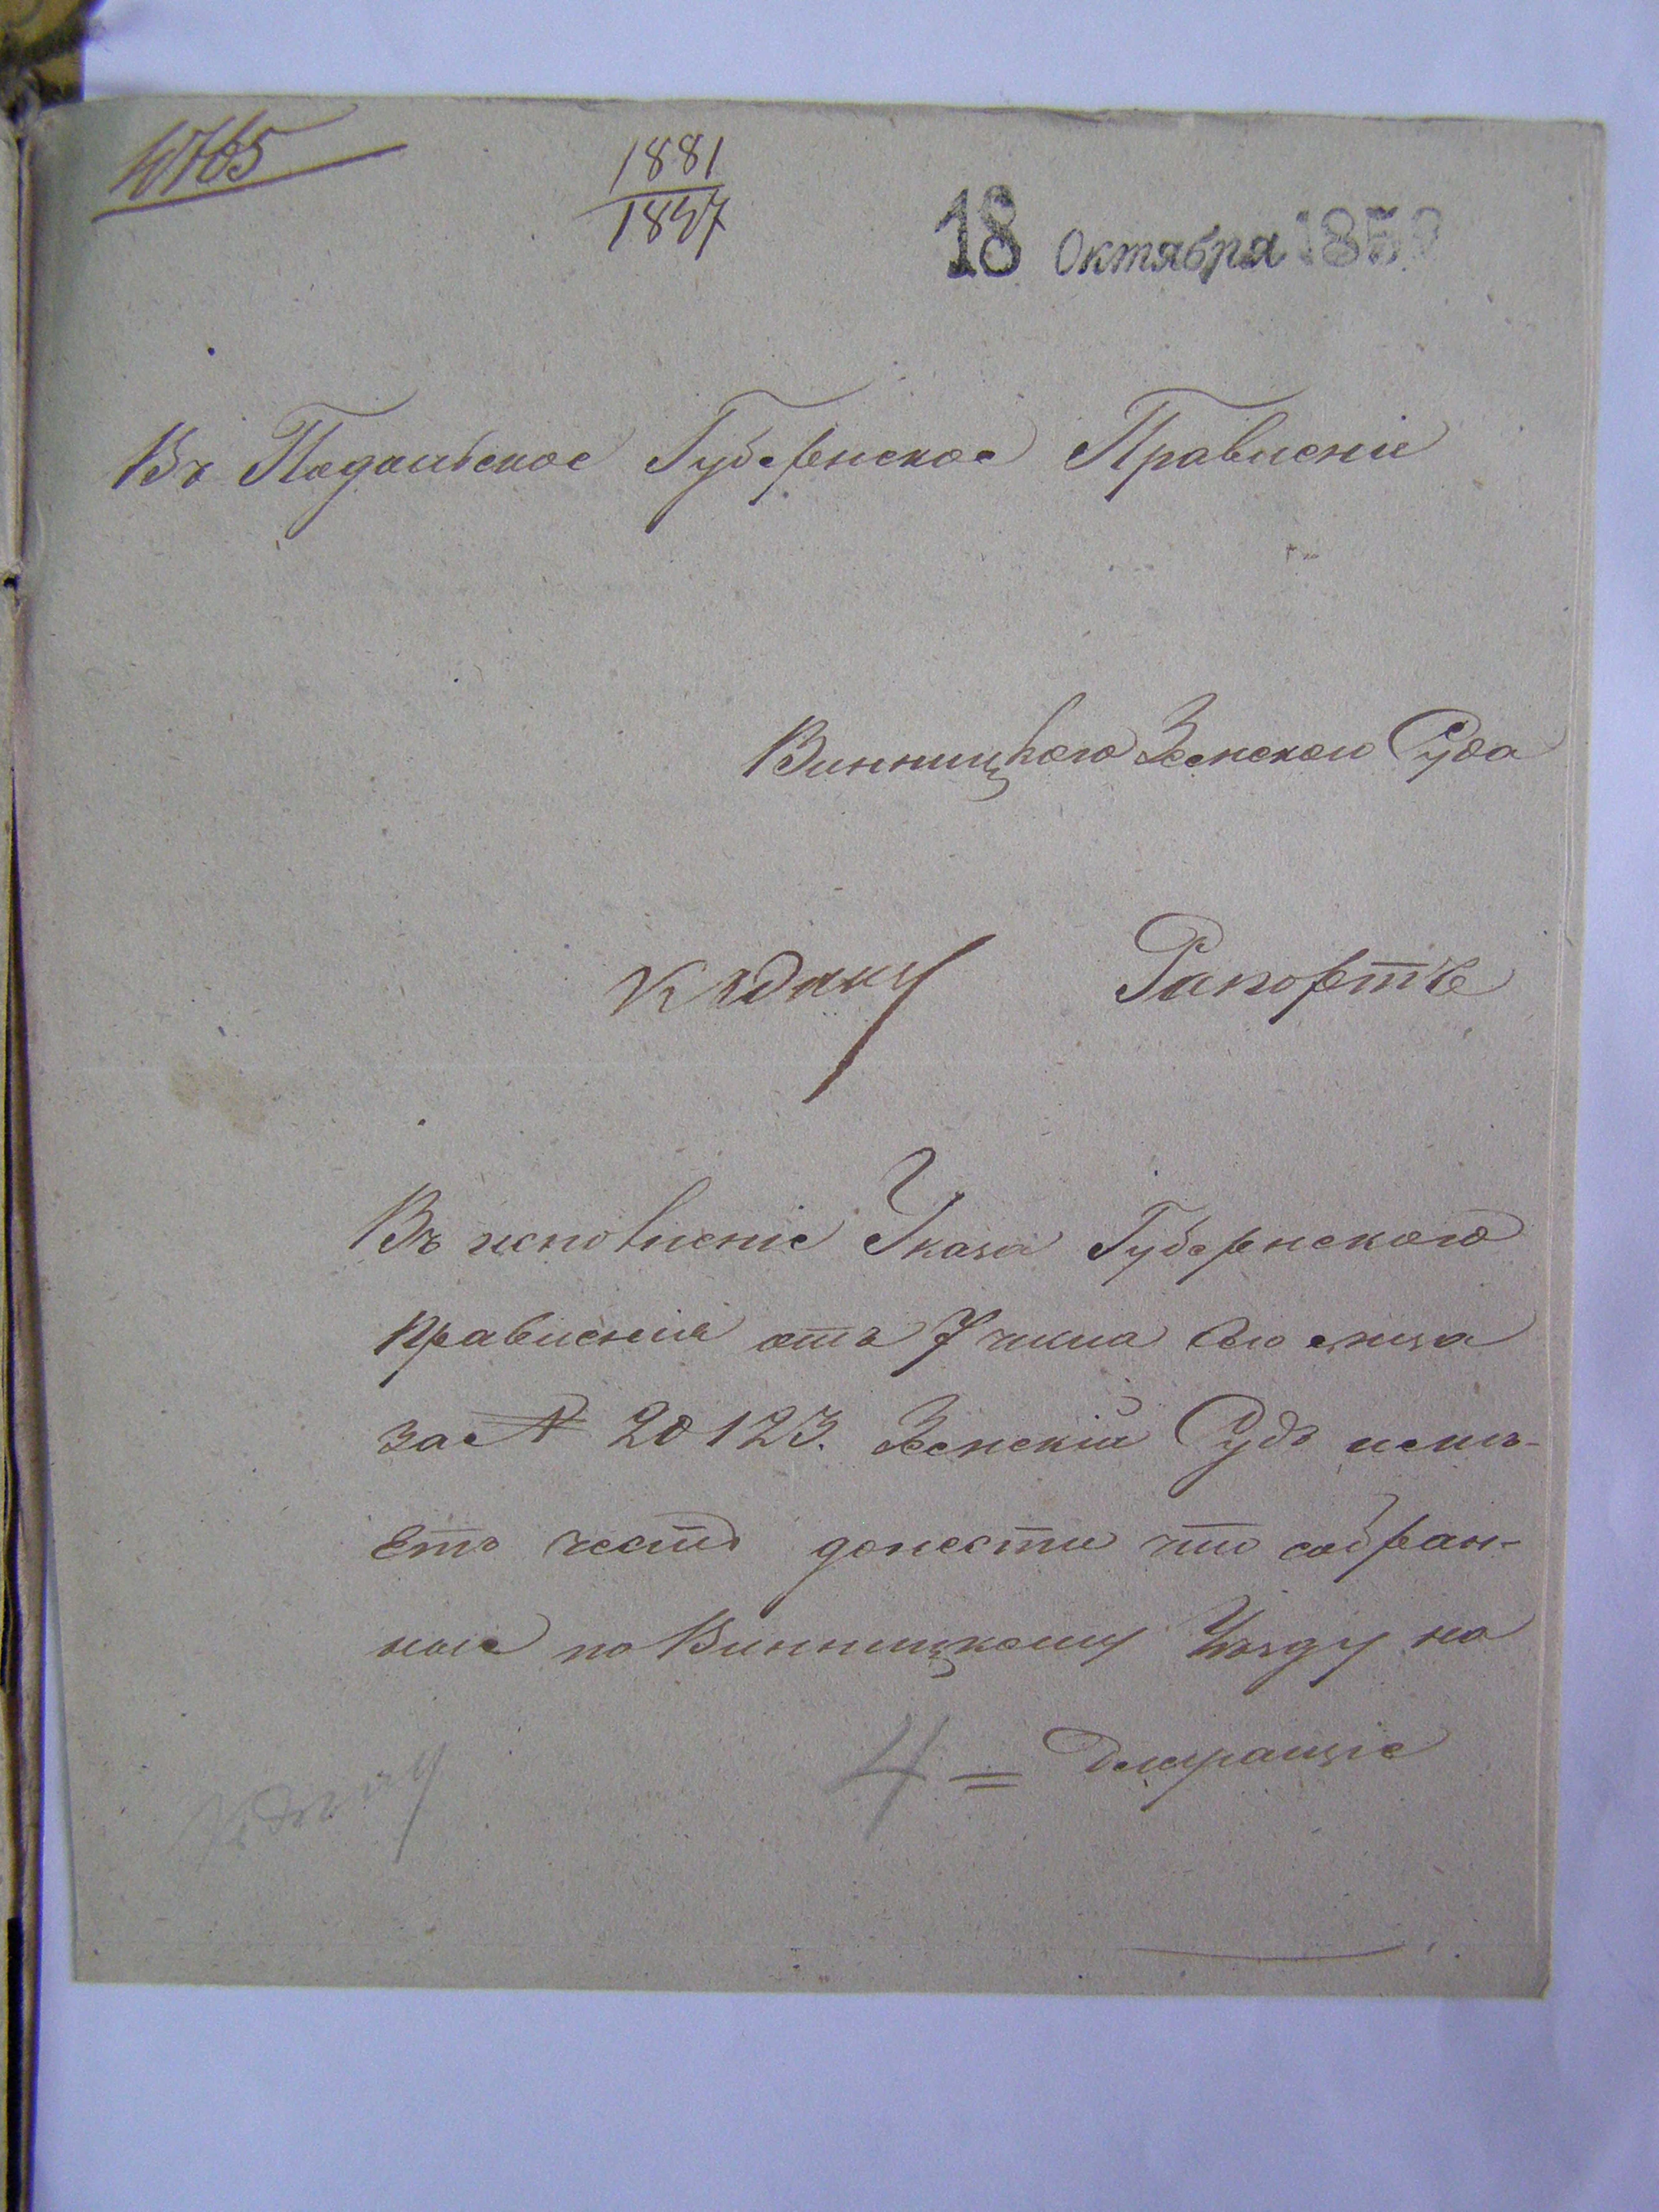 1881
1847
18 Октября 185
Въ Подольское Губернское Правленіе
Винницкаго Земскаго Суда
К дѣлу Рапортъ
Въ исполненіе Указа Губернского
Правленія отъ 7 числа сего м-ца
за № 20123. Земскій Судъ имѣ-
етъ честь донести что собран-
ные по Винницкому Уѣзду на
4 =